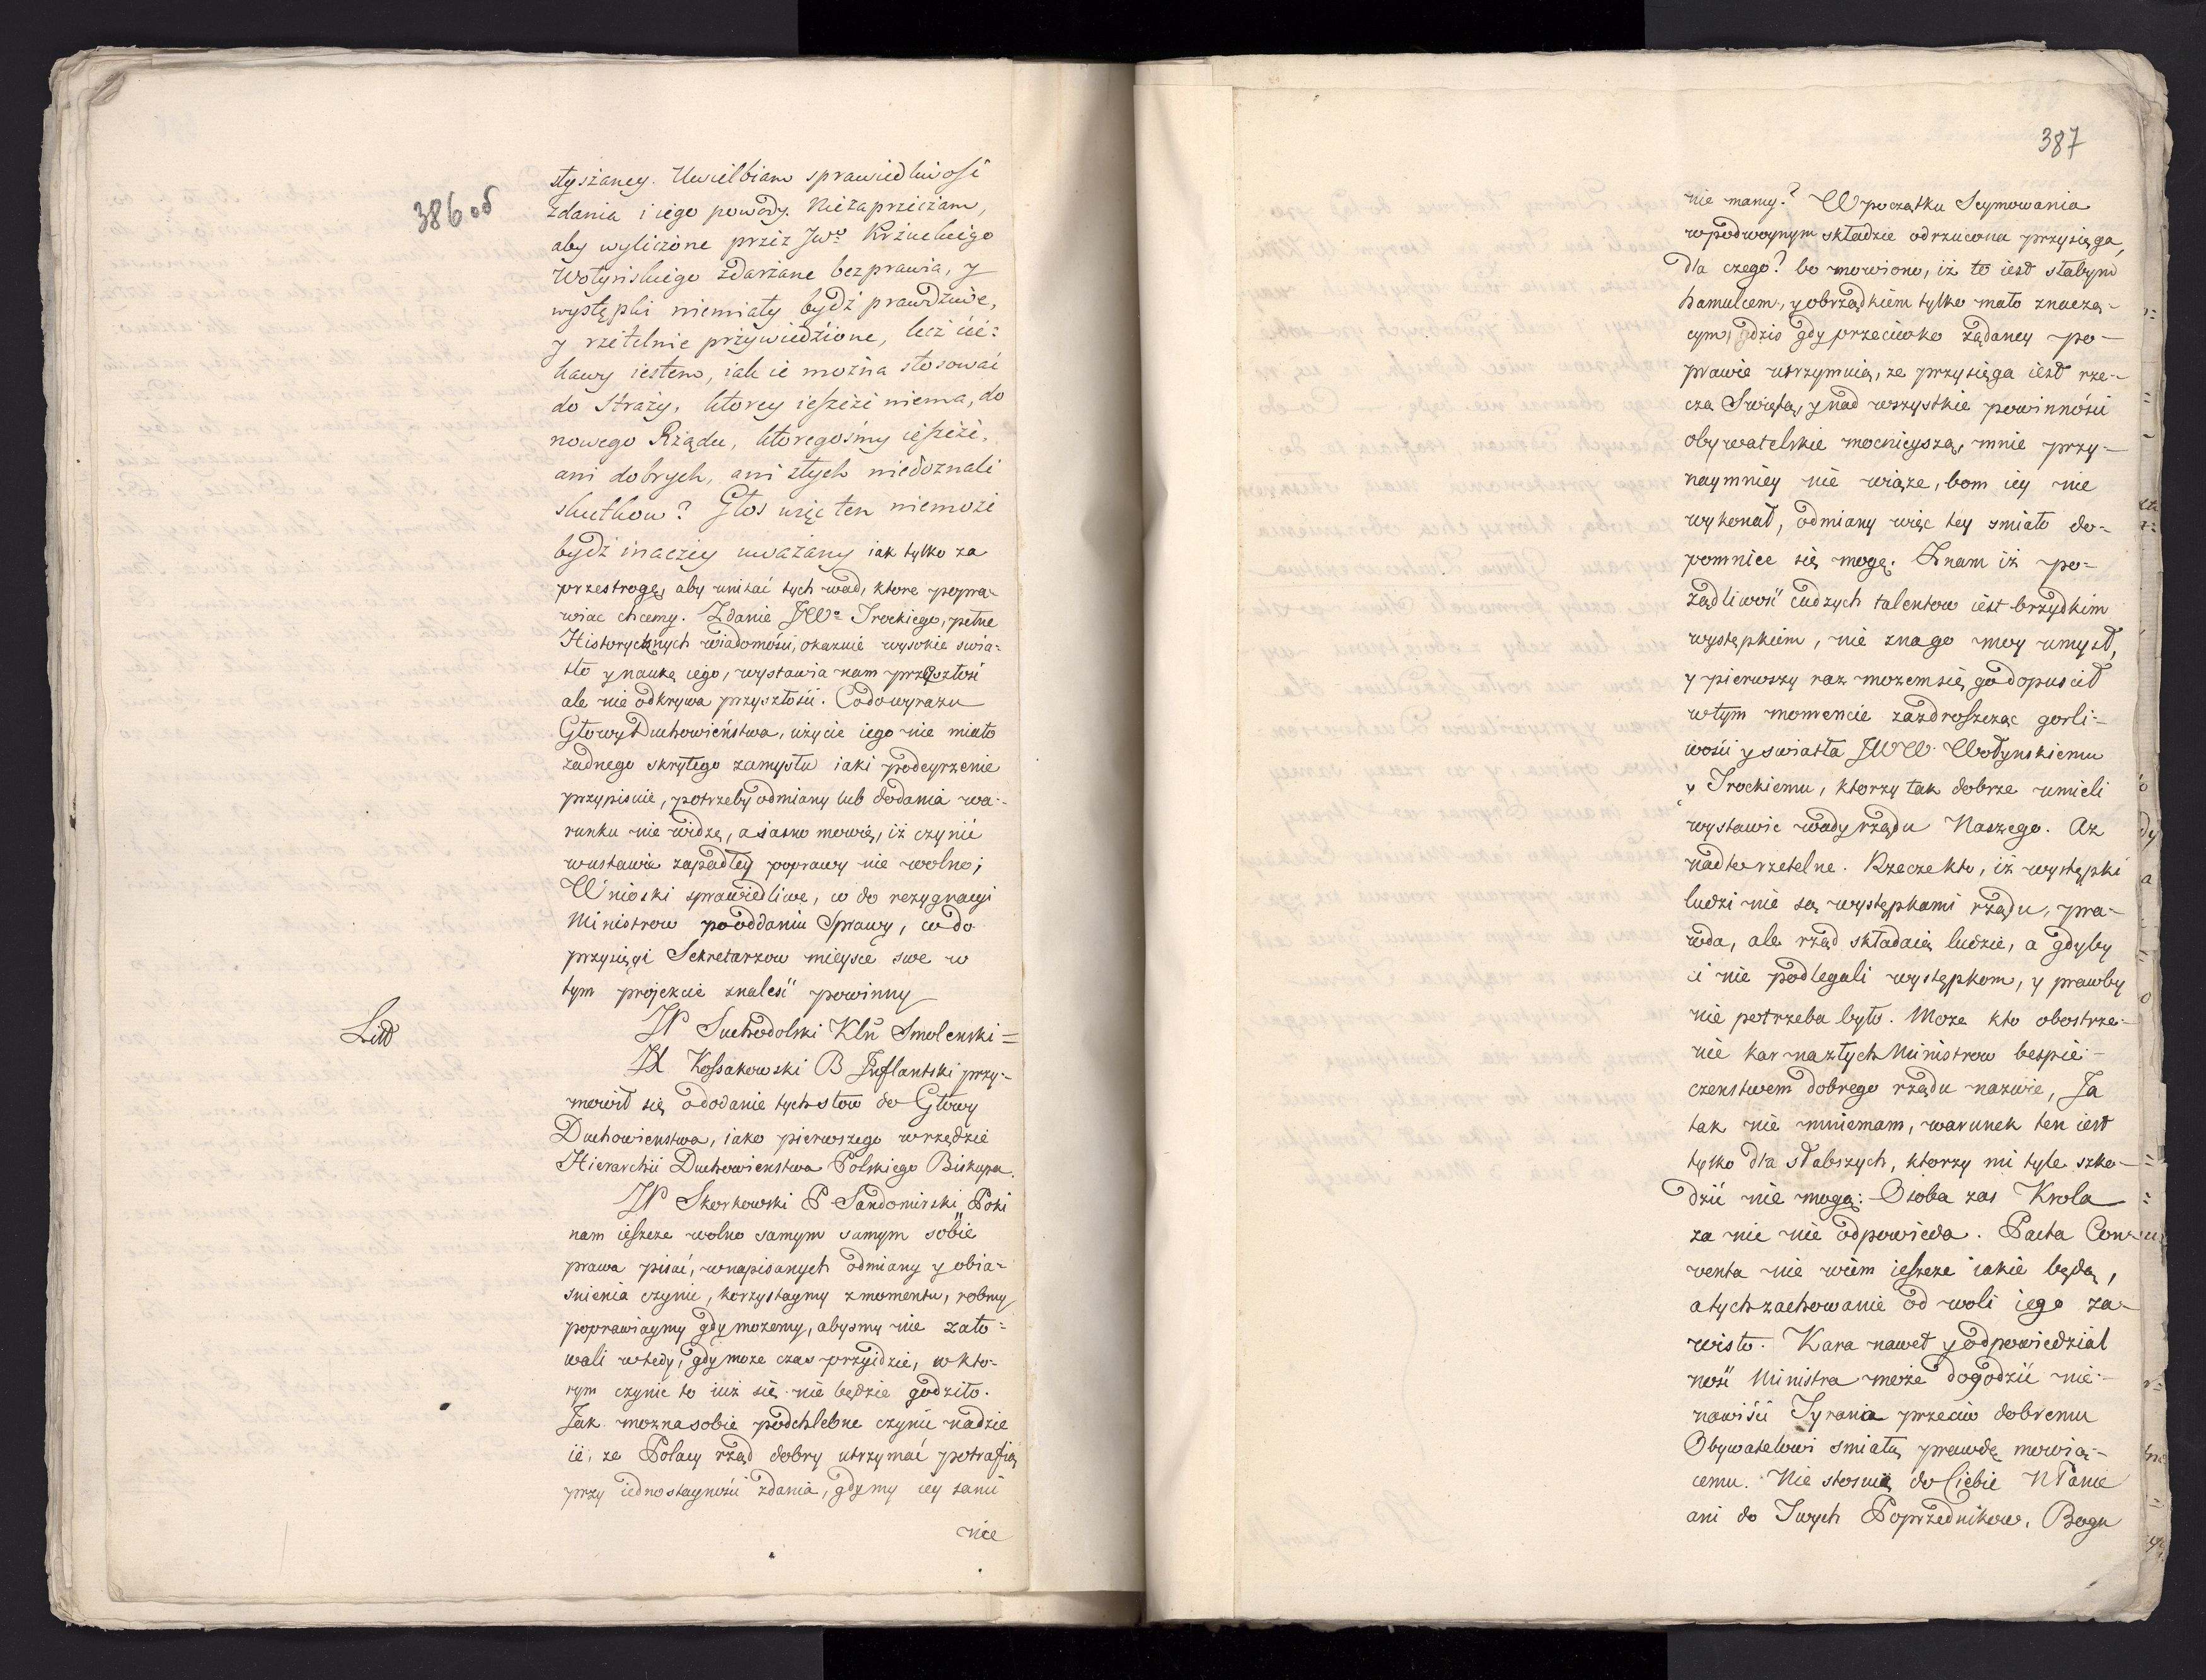 386 об
słyszaney. Uwielbiam sprawiedliwość
zdania i iego powody. Niezaprzeczam,
aby wyliczone przez JWo Krzuckiego
Wołyńskiego zdarzane bezprawia, y
występki niemiały bydź prawdziwe,
y rzetelnie przywiedzione, lecz cie=
kawy iestem, iak ie można stosować
do Straży, ktorey ieszcze niema, do
nowego Rządu, ktoregośmy ieszcze,
ani dobrych, ani złych niedoznali
skutkow? Głos więc ten niemoże
bydź inaczey uważany iak tylko za
przestrogę, aby unikać tych wad, ktore popra-
wiac chcemy. Zdanie JWo Trockiego, pełne
Historycznych wiadomości, okazuie wysokie swia=
tło y naukę iego, wystawia nam przeszłość
ale nie odkrywa przyszłości. Co do wyrazu
Głowy Duchowieństwa, użycie iego nie miało
żadnego skrytego zamysłu iaki podeyrzenie
przypisuie, potrzeby odmiany lub dodania wa-
runku nie widzę, a iasno mowię, iż czynić
w ustawie zapadłey poprawy nie wolno;
Wnioski sprawiedliwe, co do rezygnacyi
Ministrow po oddaniu Sprawy, co do
przysięgi Sekretarzow mieysce swe w
tym projekcie znaleść powinny
Litt
JP Suchodolski Kln Smolenski =
JX Kossakowski B Inflantski przy=
mowił się o dodanie tych słow do Głowy
Duchowienstwa, iako pierwszego w rzędzie
Hierarchii Duchowienstwa Polskiego Biskupa.
JP Skorkowski P Sandomirski, Poki
nam ieszcze wolno samym samym sobie
prawa pisać, w napisanych odmiany y obia=
snienia czynic, korzystaymy z momentu, robmy
poprawiaymy gdy mozemy, abysmy nie zało=
wali wtedy, gdy moze czas przyidzie, w kto-
rym czynic to iuż się nie będzie godziło.
Jak mozna sobie podchlebne czynic nadzie
ie, ze Polacy rząd dobry utrzymać potrafią
przy iednostayności zdania, gdy my iey sami
nie
387
nie mamy? W początku Seymowania
w podwoynym składzie odrzucona przysięga,
dla czego? bo mowiono, iż to iest słabym
hamulcem, y obrządkiem tylko mało znaczą-
cym, dziś gdy przeciwko żądaney po-
prawie utrzymuią, ze przysięga iest rze-
czą Swiętą, y nad wszystkie powinności
obywatelskie mocnieyszą, mnie przy-
naymniey nie wiąze, bom iey nie
wykonał, odmiany więc tey smiało do-
pomniec się mogę. Znam iż po-
żądliwość cudzych talentow iest brzydkim
występkiem, nie zna go moy umysł,
y pierwszy raz mozem się go dopuscił
w tym momencie zazdroszcząc gorli-
wości y swiatła JWW. Wołynskiemu
y Trockiemu, ktorzy tak dobrze umieli
wystawic wady rządu Naszego. Az
nadto rzetelne. Rzecze kto, iż występki
ludzi nie są występkami rządu, pra-
wda, ale rząd składaią ludzie, a gdyby
ci nie podlegali występkom, y prawby
nie potrzeba było. Moze kto obostrze-
nie kar na złych Ministrow bespie-
czenstwem dobrego rządu nazwie, Ja
tak nie mniemam, warunek ten iest
tylko dla słabszych, ktorzy mi tyle szko-
dzić nie mogą: Osoba zas Krola
za nic nie odpowieda. Pacta Con-
venta nie wiem ieszcze iakie będą,
a tych zachowanie od woli iego za-
wisło. Kara nawet y odpowiedzial
ność Ministra może dogodzić nie-
nawiści Tyrana przeciw dobremu
Obywatelowi smiałą prawdę mowią-
cemu. Nie stosuię do Ciebie N Panie
ani do Twych Poprzednikow, Bogu